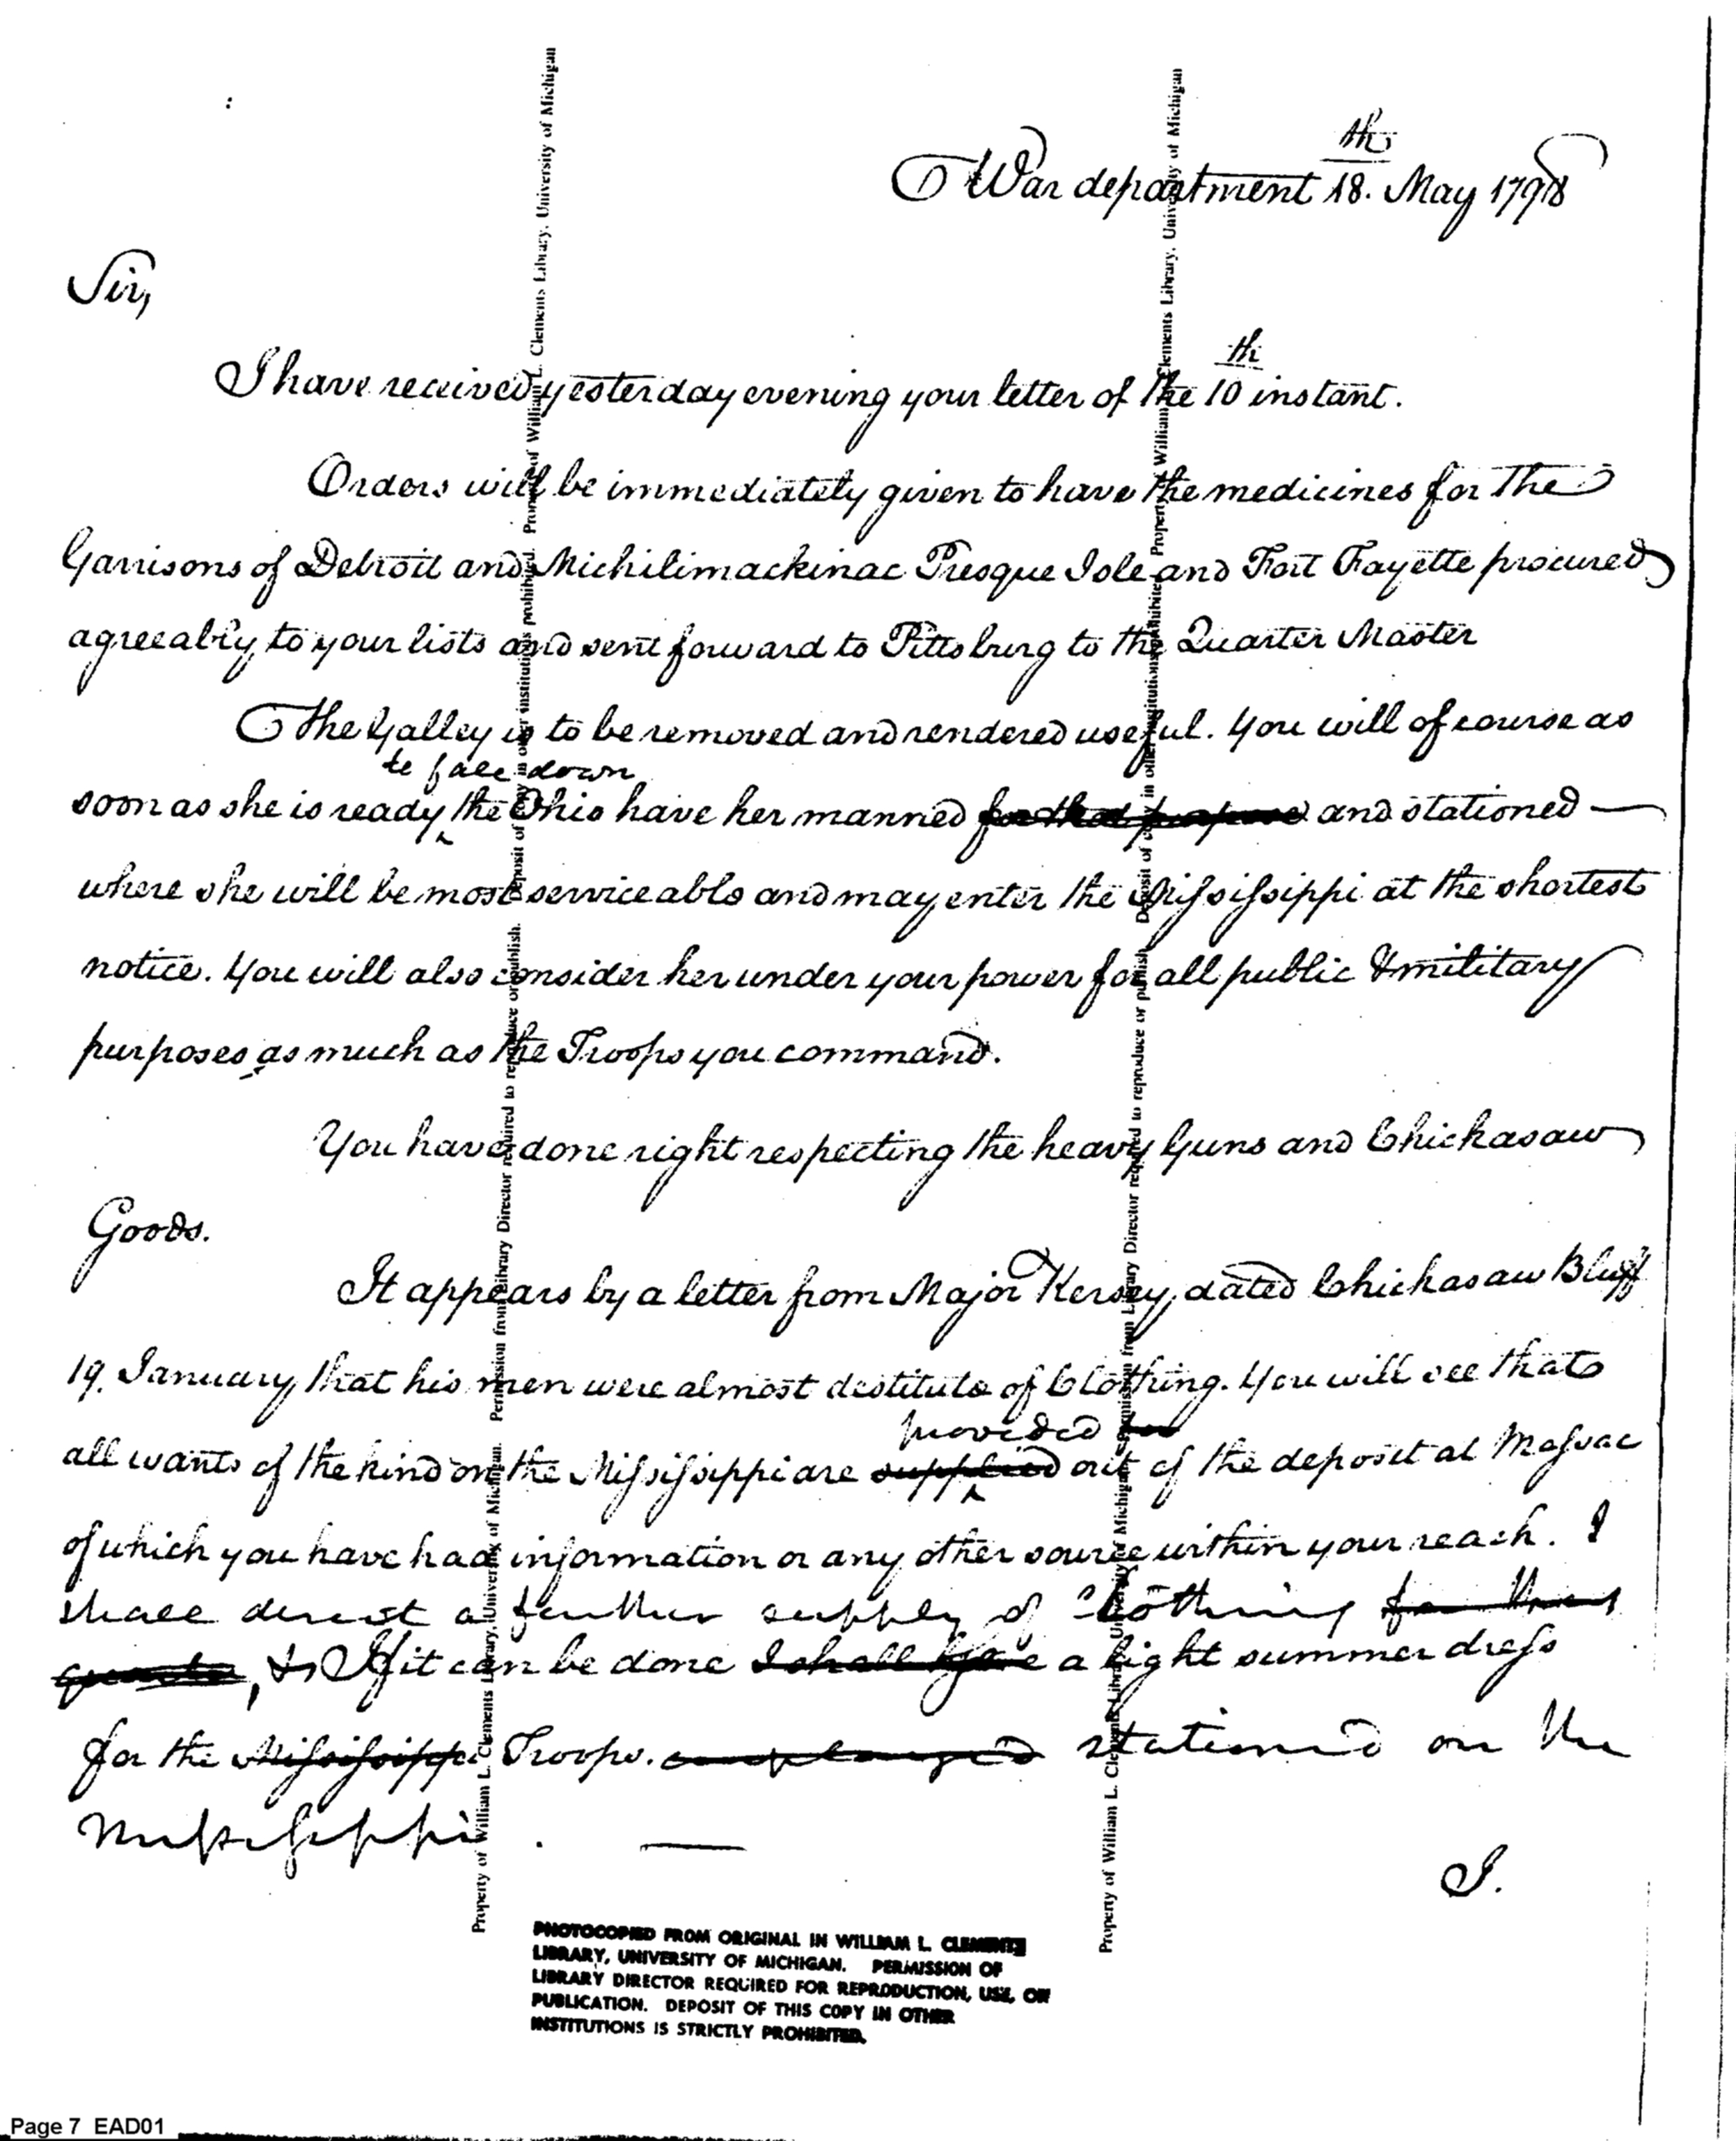 War department 18th. May 1798
Sir,
I have received yesterday evening your letter of the 10th instant.
Orders will be immediately given to have the medicines for the
Garrisons of Detroit and Michilimackinac Presque Isle and Fort Fayette procured
agreeably to your lists and sent forward to Pittsburg to the Quarter Master
The Galley is to be removed and rendered useful. You will of course as
to fall down
soon as she is ready ^ the Ohio have her manned for that purpose and stationed —
where she will be most serviceable and may enter the Mississippi at the shortest
notice. You will also consider her under your power for all public & military
purposes as much as the Troops you command.
You have done right respecting the heavy Guns and Chickasaw
Goods.
It appears by a letter from Major Kersey, dated Chickasaw Bluff
19. January, that his men were almost destitute of Clothing. You will see that
provided
all wants of the kind on the Mississippi are supplied ^ out of the deposit at Massac
of which you have had information or any other source within your reach. I
shall direct a further supply of Clothing for
, & If it can be done I shall have a light summer dress
for the Mississippi Troops. stationed on the
Mississippi. —
I.
Property of William L. Clements Library, University of Michigan. Permission from Library Director required to reproduce or publish. Deposit of copy in other institutions prohibited. Property of William L. Clements Library, University of Michigan
Property of William L. Clements Library, University of Michigan. Permission from Library Director required to reproduce or publish. Deposit of copy in other institutions prohibited. Property of William L. Clements Library, University of Michigan
PHOTOCOPIED FROM ORIGINAL IN WILLIAM L. CLEMENTS
LIBRARY, UNIVERSITY OF MICHIGAN. PERMISSION OF
LIBRARY DIRECTOR REQUIRED FOR REPRODUCTION, USE, OR
PUBLICATION. DEPOSIT OF THIS COPY IN OTHER
INSTITUTIONS IS STRICTLY PROHIBITED.
Page 7 EAD01